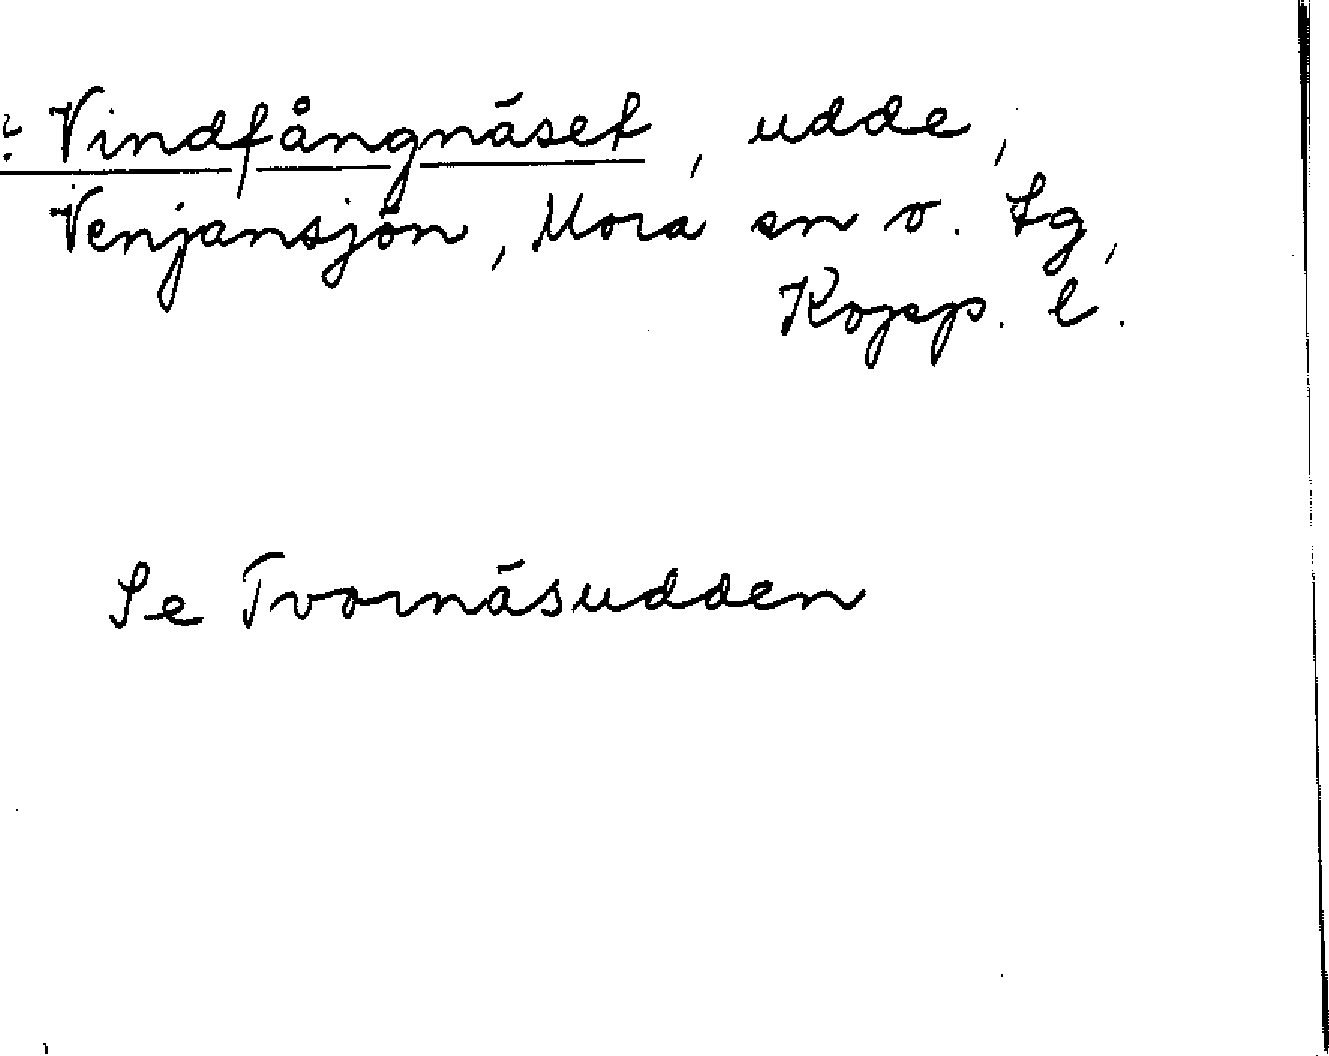 ? Vindfångnäset, udde,
Venjansjön, Mora sn o. tg,
Kopp. l.
Se Tvornäsudden